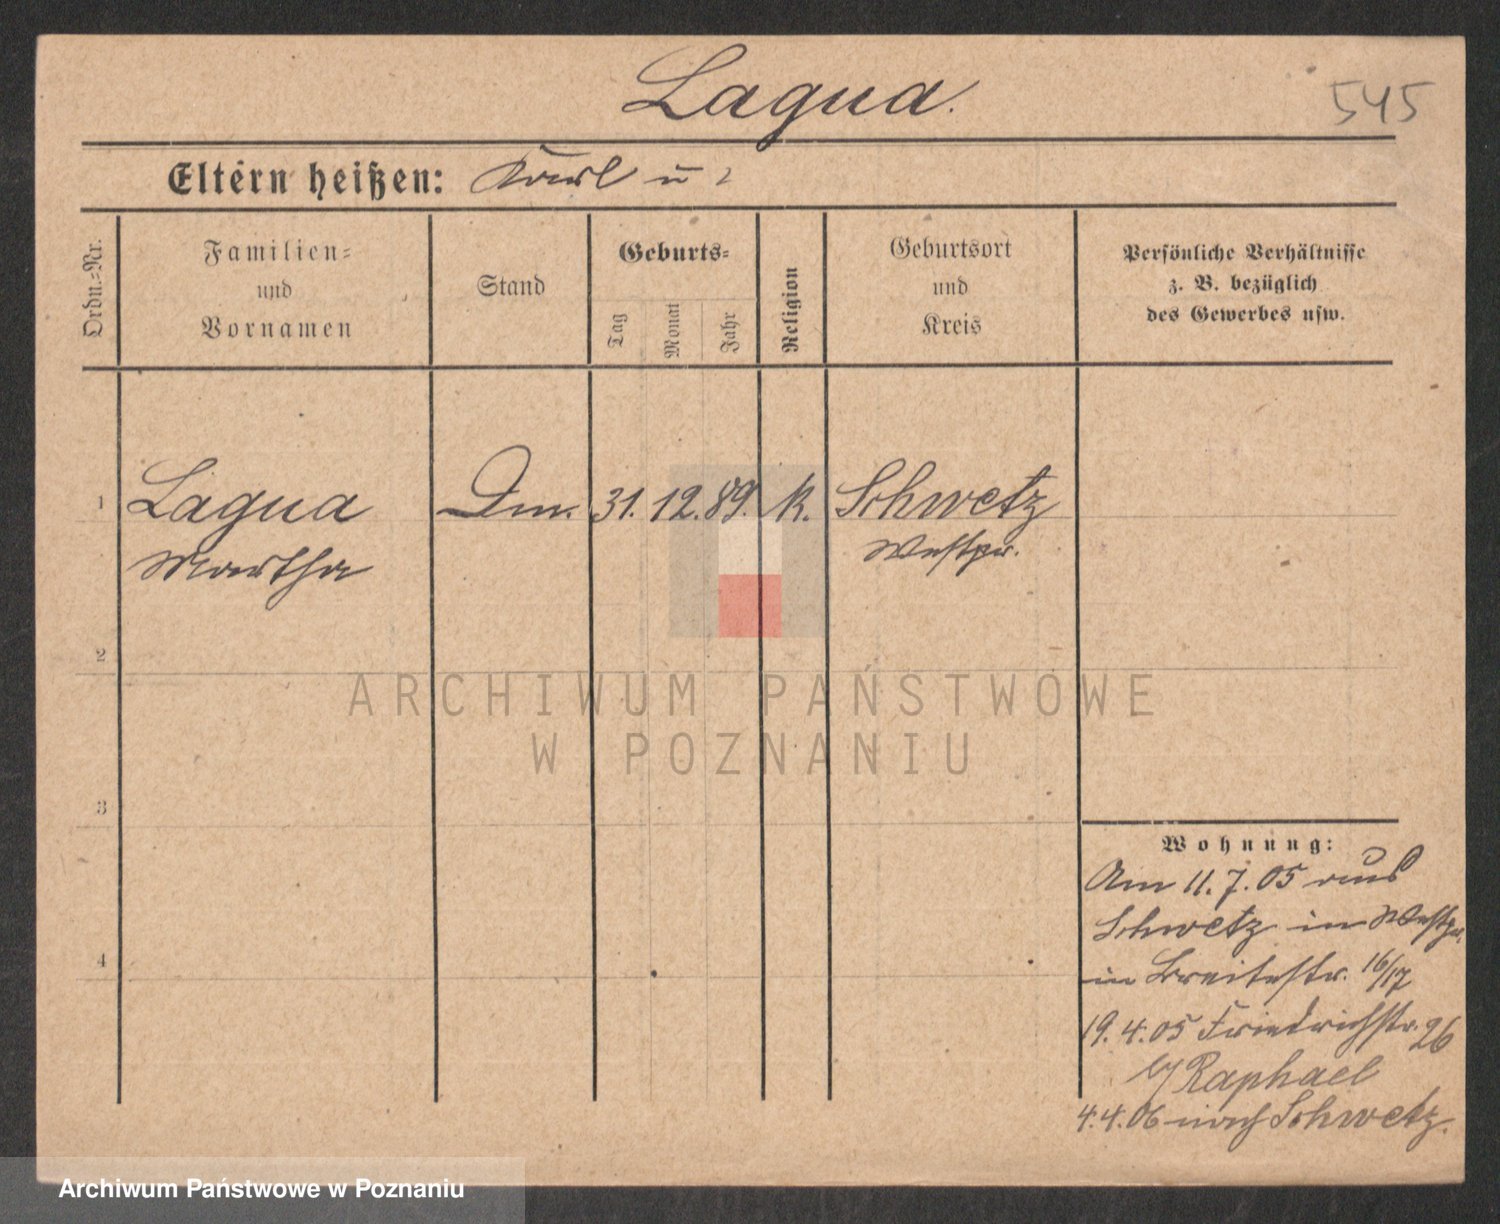 Lagua.
545
Eltern heißen: Karl u ?
Ordn.-Nr.
Familien-
und
Vornamen
Stand
Geburts-
Tag
Monat
Jahr
Religion
Geburtsort
und
Kreis
Persönliche Verhältnisse
z. B. bezüglich
des Gewerbes usw.
1 Lagua 31. 12. 89. k. Schwetz
Martha Westpr.
2
3
4
ARCHIWUM PAŃSTWOWE
W POZNANIU
Wohnung:
Am 11. 7. 05 aus
Schwetz in Westpr.
in Breitestr. 16/17
19. 4. 05 Friedrichstr. 26
b/ Raphael
4. 4. 06 nach Schwetz.
Archiwum Państwowe w Poznaniu